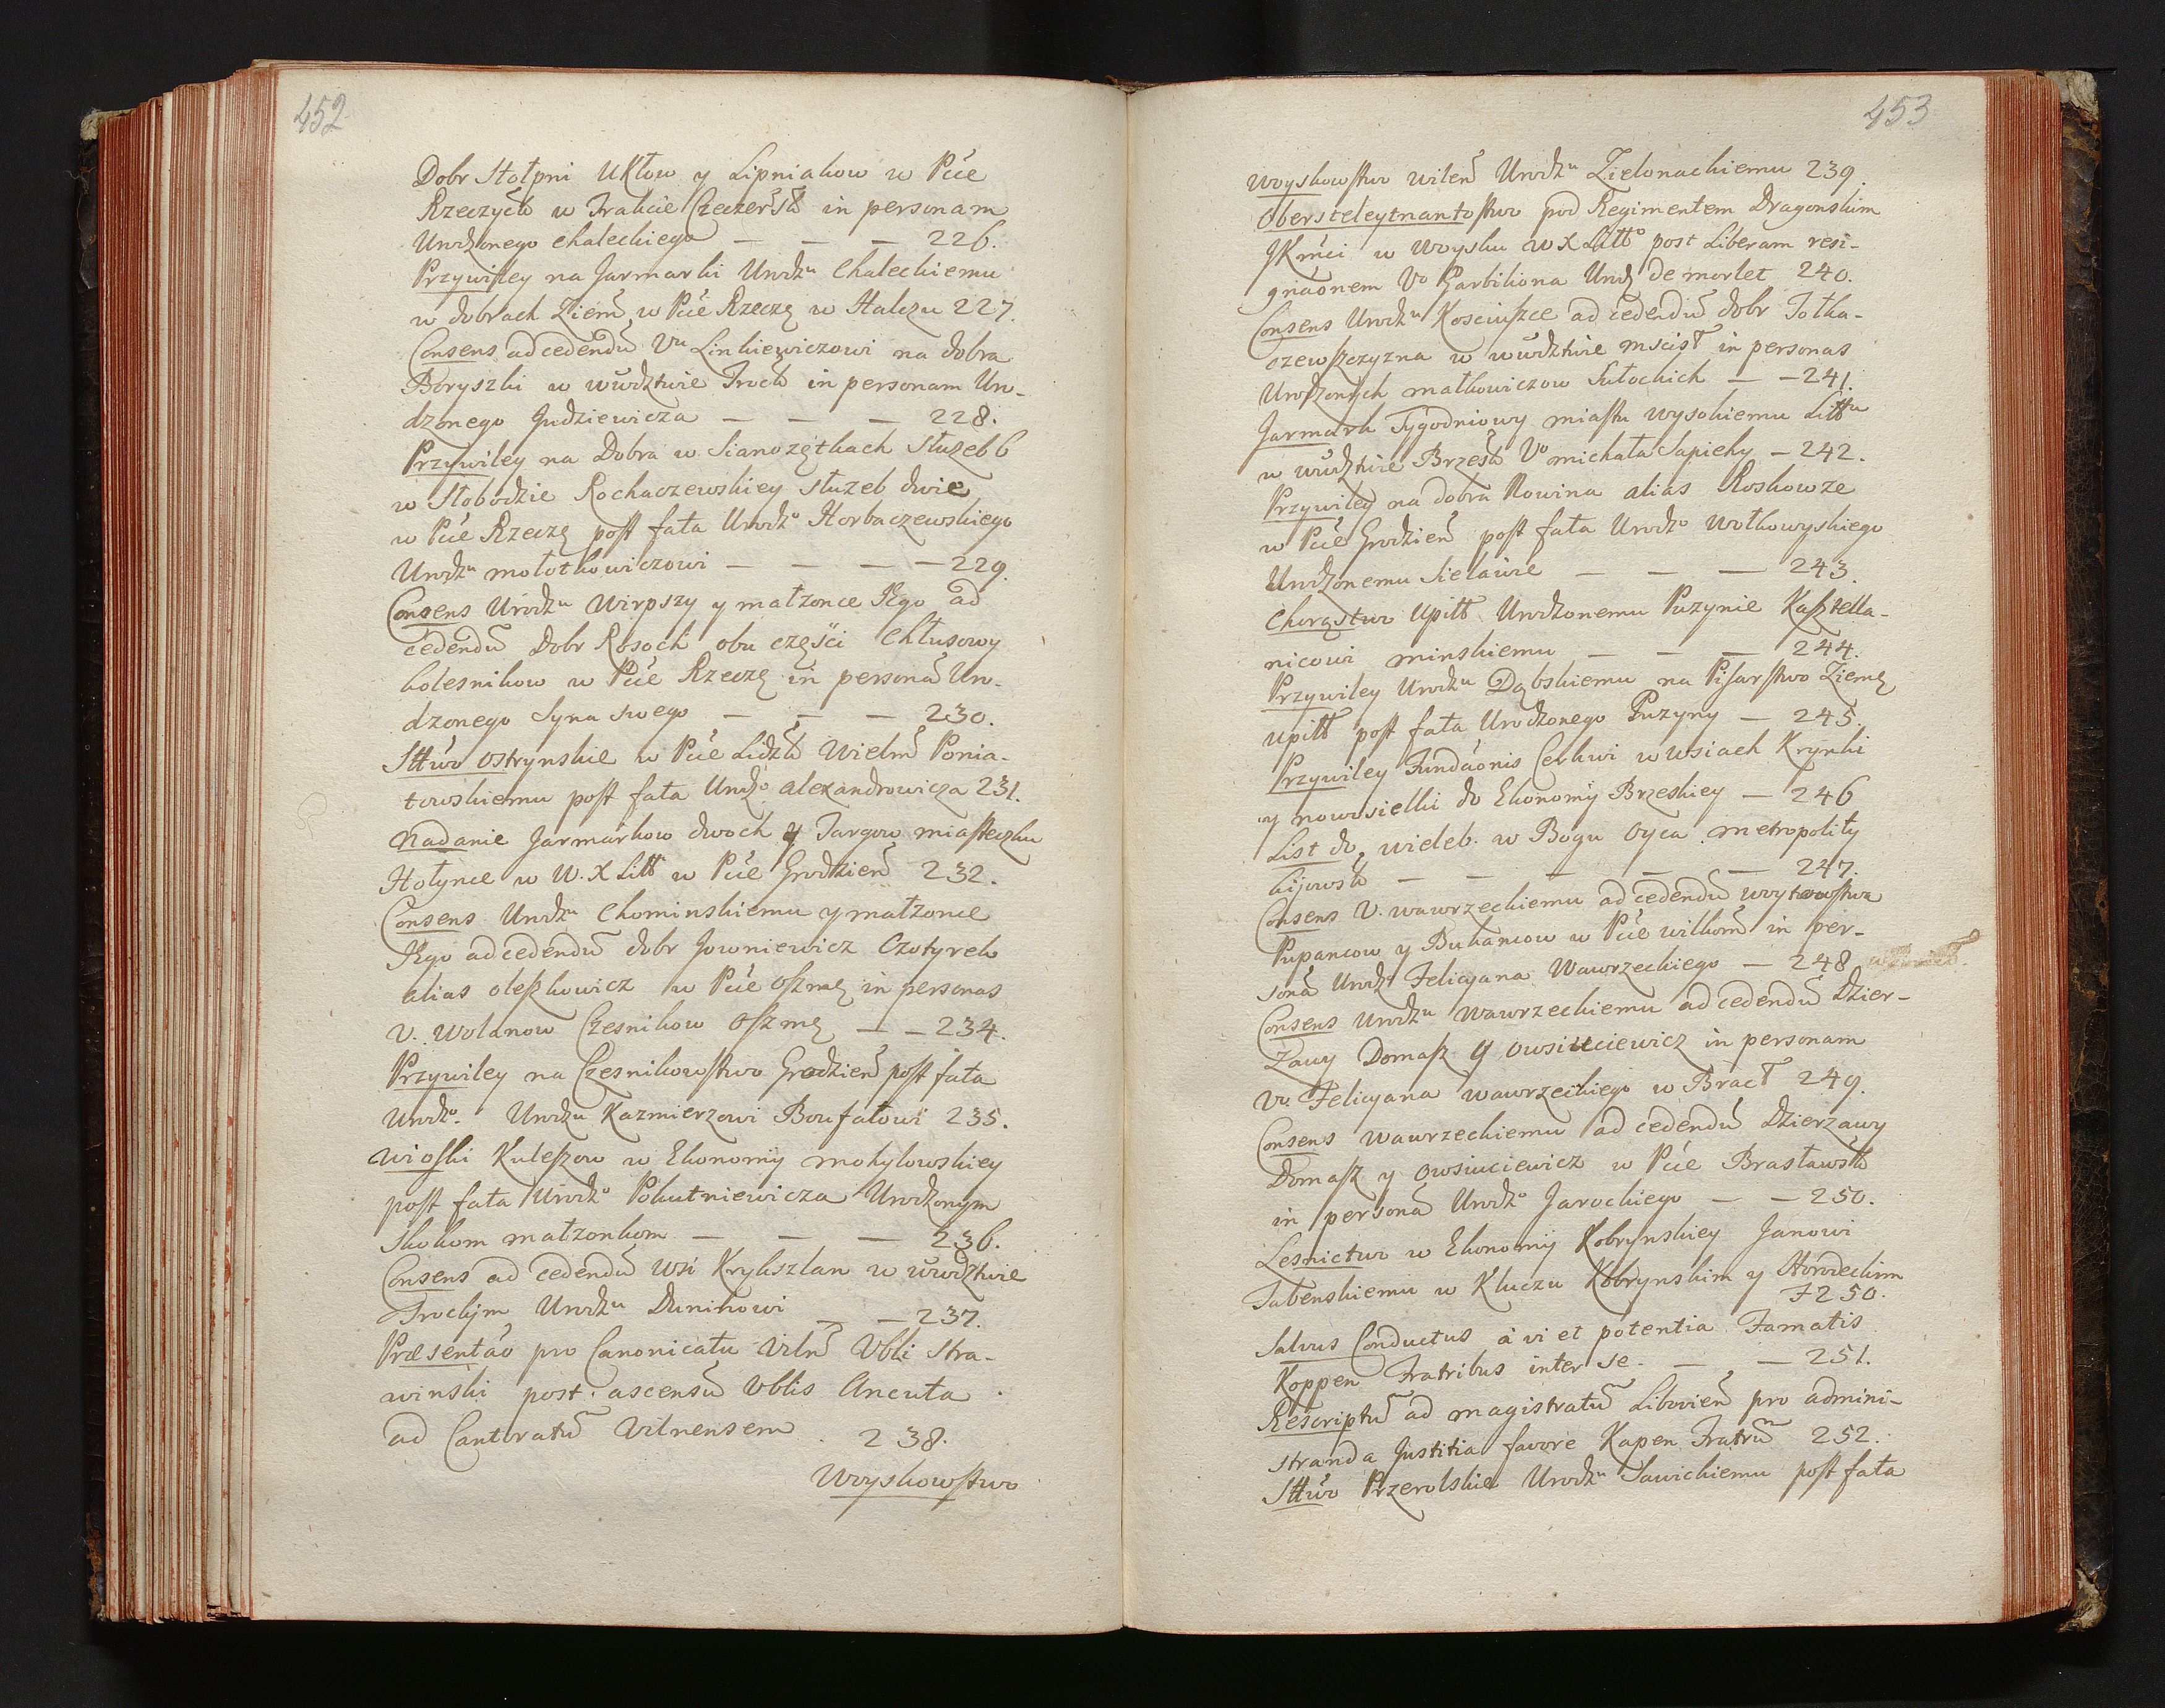 452
Dobr Stołpni Uktow y Lipniakow w Pcie
Rzeczyck w Trakcie Czeczersk in personam
Urodzonego Chaleckiego — — — 226.
Przywiley na Jarmarki Urodzu Chaleckiemu
w dobrach Ziem w Pcie Rzeczę w Halczu 227.
Consens ad cedendū Vu Linkiewiczowi na dobra
Boryszki w wdztwie Trock in personam Uro-
dzonego Judziewicza — — — 228.
Przywiley na Dobra w Sianozętkach Służeb 6
w Słobodzie Rochaczewskiey służeb dwie
w Pcie Rzeczę post fata Urodzo Horbaczewskiego
Urodzu mołotkowiczowi — — — — 229.
Consens Urodzu Wirpszy y małzonce Jego ad
cedendū Dobr Rosoch obu części Chłusowy
kolesnikow w Pcie Rzeczę in personā Uro-
dzonego Syna swego — — — 230.
Sttwo Ostrynskie w Pcie Lidzk Wielm Ponia-
towskiemu post fata Urodzo Alexandrowicza 231.
Nadanie Jarmarkow dwoch y Targow miasteczku
Hołynce w W. X Litt w Pcie Grodzień 232.
Consens Urodzu Chominskiemu y małzonce
Jego ad cedendū dobr Jowniewicz Czotyrek
alias oleszkowicz w Pcie oszmę in personas
V. Wolanow Czesnikow Oszmę — — 234.
Przywiley na Czesnikowstwo Grodzień post fata
Urodzo. Urodzu Kazmierzowi Boufałowi 235.
Wioski Kuleszow w Ekonomij mohylowskiey
post fata Urodzo Pokutniewicza Urodzonym
Skokom małzonkom — — — 236.
Consens ad cedendū wsi Krykszlan w wdztwie
Trockim Urodzu Duninowi — — 237.
Præsentao pro Canonicatu Viln Vbli Stra-
winski post ascensū Vblis Ancuta
ad Cantoratū Vilnensem 238.
Woyskowstwo
453
Woyskowstwo wilen Urodzu Zielonackiemu 239.
Obersteleytnantostwo pod Regimentem Dragonskim
JKmci w woysku w X Litto post Liberam resi-
gnaonem Vo Garbiliona Urodz de morlet 240.
Consens Urodzu Kosciuszce ad cedendū dobr Tołka-
czewszczyzna w wdztwie mscisł in personas
Urodzonych małkowiczow Sułockich — — 241.
Jarmark Tygodniowy miastu wysokiemu Littu
w wdztwie Brzesk Vo michała Sapiehy — 242.
Przywiley na dobra Rowina alias Roskowze
w Pcie Grodzień post fata Urodzo Wołkowyskiego
Urodzonemu Sielawie — — — 243.
Chorąstwo Upitt Urodzonemu Puzynie Kasztella-
nicowi minskiemu — — — 244.
Przywiley Urodzu Dąbskiemu na Pisarstwo Ziemę
upitt post fata Urodzonego Puzyny — 245.
Przywiley Fundaonis Cerkwi w wsiach Krynki
y nowosielki do Ekonomij Brzeskiey — 246
List do wieleb. w Bogu Oyca metropolity
kijowsk — — — — — 247.
Consens V. wawrzeckiemu ad cedendū woytowstwa
Pupancow y Bukancow w Pcie wilkom in per-
sonā Urodz Felicyana Wawrzeckiego — 248
Consens Urodzu Wawrzeckiemu ad cedendū Dzier-
żawy Domasz y owsiuciewicz in personam
Vo. Felicyana wawrzeckiego w Bracł 249.
Consens wawrzeckiemu ad cedendū Dzierzawy
Domasz y Owsiuciewicz w Pcie Brasławsk
in personā Urodzo Jarockiego — — 250.
Lesnictwo w Ekonomij Kobrynskiey Janowi
Tabenskiemu w Kluczu Kobrynskim y Horodeckim
F250.
Salvus Conductus à vi et potentia Famatis
Koppen Fratribus inter se. — — 251.
Rescriptū ad magistratū Libovien pro admini-
stranda Justitia favore Kapen Fratrū 252.
Sttwo Przerolskie Urodzu Sawickiemu post fata